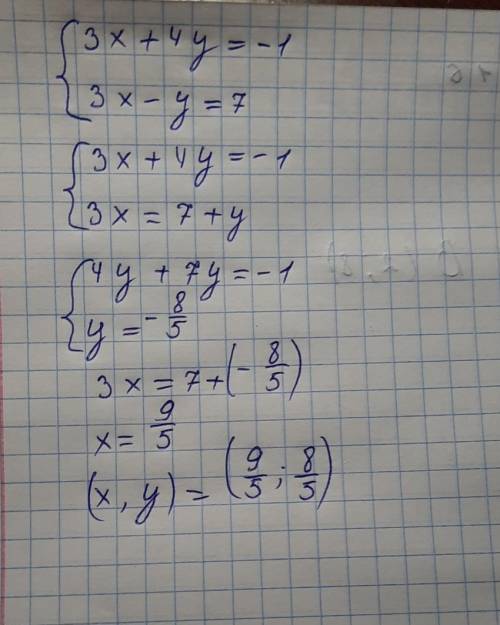 3x + 4y = -1
3x - y = 7
3x + 4y = -1
3x = 7 + y
4y + 7y = -1
y = -8/5
3x = 7 + (-8/5)
x = 9/5
(x, y) = (9/5; 8/5)